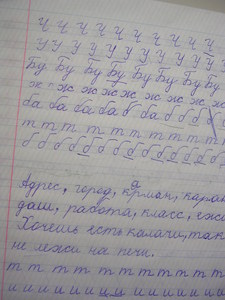 Ч Ч Ч Ч Ч Ч Ч Ч Ч
У У У У У У У У У У
Бу Бу Бу Бу Бу Бу Бу Бу
ж ж ж ж ж ж ж ж ж
ба ба ба ба б б б б
т т т т т т т т т т
б б б б б б б б б б б
Адрес, город, карман,
работа, класс,
Хочешь есть калачи, так
не лежи на печи.
т т т т т т т т т т т
и и и и и и и и и и